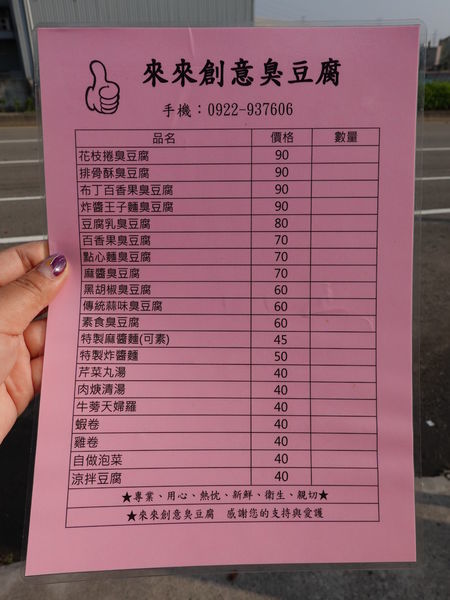 來來創意臭豆腐
手機：0922-937606
品名 價格 數量
花枝捲臭豆腐 90
排骨酥臭豆腐 90
布丁百香果臭豆腐 90
炸醬王子麵臭豆腐 90
豆腐乳臭豆腐 80
百香果臭豆腐 70
點心麵臭豆腐 70
麻醬臭豆腐 70
黑胡椒臭豆腐 60
傳統蒜味臭豆腐 60
素食臭豆腐 60
特製麻醬麵(可素) 45
特製炸醬麵 50
芹菜丸湯 40
肉焿清湯 40
牛蒡天婦羅 40
蝦卷 40
雞卷 40
自做泡菜 40
涼拌豆腐 40
★專業、用心、熱忱、新鮮、衛生、親切★
★來來創意臭豆腐 感謝您的支持與愛護